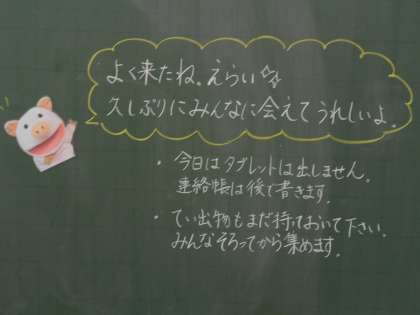 よく来たね。えらい☆
久しぶりにみんなに会えてうれしいよ。
・今日はタブレットは出しません。
連絡帳は後で書きます。
・てい出物もまだ持っておいて下さい。
みんなそろってから集めます。